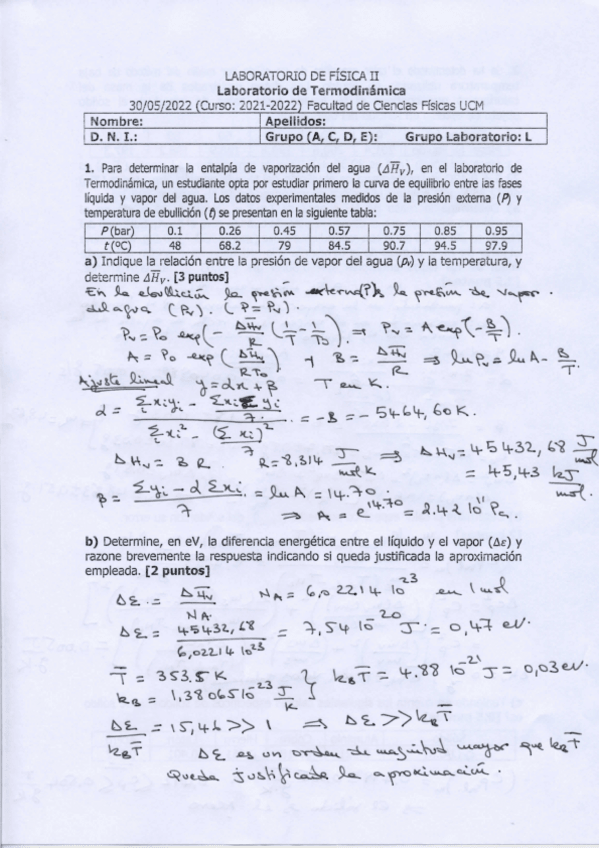 LABORATORIO DE FÍSICA II
Laboratorio de Termodinámica
30/05/2022 (Curso: 2021-2022) Facultad de Ciencias Físicas UCM
Nombre: Apellidos:
D. N. I.: Grupo (A, C, D, E): Grupo Laboratorio: L
1. Para determinar la entalpía de vaporización del agua (ΔH̅v), en el laboratorio de
Termodinámica, un estudiante opta por estudiar primero la curva de equilibrio entre las fases
líquida y vapor del agua. Los datos experimentales medidos de la presión externa (P) y
temperatura de ebullición (t) se presentan en la siguiente tabla:
P (bar) 0.1 0.26 0.45 0.57 0.75 0.85 0.95
t (ºC) 48 68.2 79 84.5 90.7 94.5 97.9
a) Indique la relación entre la presión de vapor del agua (pv) y la temperatura, y
determine ΔH̅v. [3 puntos]
En la ebullición la presión externa (P) es la presión de vapor
del agua (Pv). (P = Pv).
Pv = Po exp(- ΔH̅v/R (1/T - 1/To)). ⇒ Pv = A exp(-B/T).
A = Po exp(ΔH̅v/RTo) y B = ΔH̅v/R ⇒ ln Pv = ln A - B/T.
Ajuste lineal y = αx + β T en K.
α = (Σ xi yi - Σxi Σyi/7) / (Σ xi² - (Σ xi)²/7) = -B = - 5464,60 K.
ΔHv = B R. R = 8,314 J/mol K ⇒ ΔHv = 45432,68 J/mol
= 45,43 kJ/mol.
β = (Σyi - α Σxi)/7 = ln A = 14.70.
⇒ A = e^14.70 = 2.42 10^11 Pa.
b) Determine, en eV, la diferencia energética entre el líquido y el vapor (Δε) y
razone brevemente la respuesta indicando si queda justificada la aproximación
empleada. [2 puntos]
Δε = ΔH̅v/NA. NA = 6,02214 10^23 en 1 mol
Δε = 45432,68/6,02214 10^23 = 7,54 10^-20 J = 0,47 eV.
T̅ = 353.5 K
kB = 1,38065 10^23 J/K } kB T̅ = 4.88 10^-21 J = 0,03 eV.
Δε/kBT̅ = 15,46 >> 1 ⇒ Δε >> kBT̅
Δε es un orden de magnitud mayor que kBT̅
Queda justificada la aproximación.